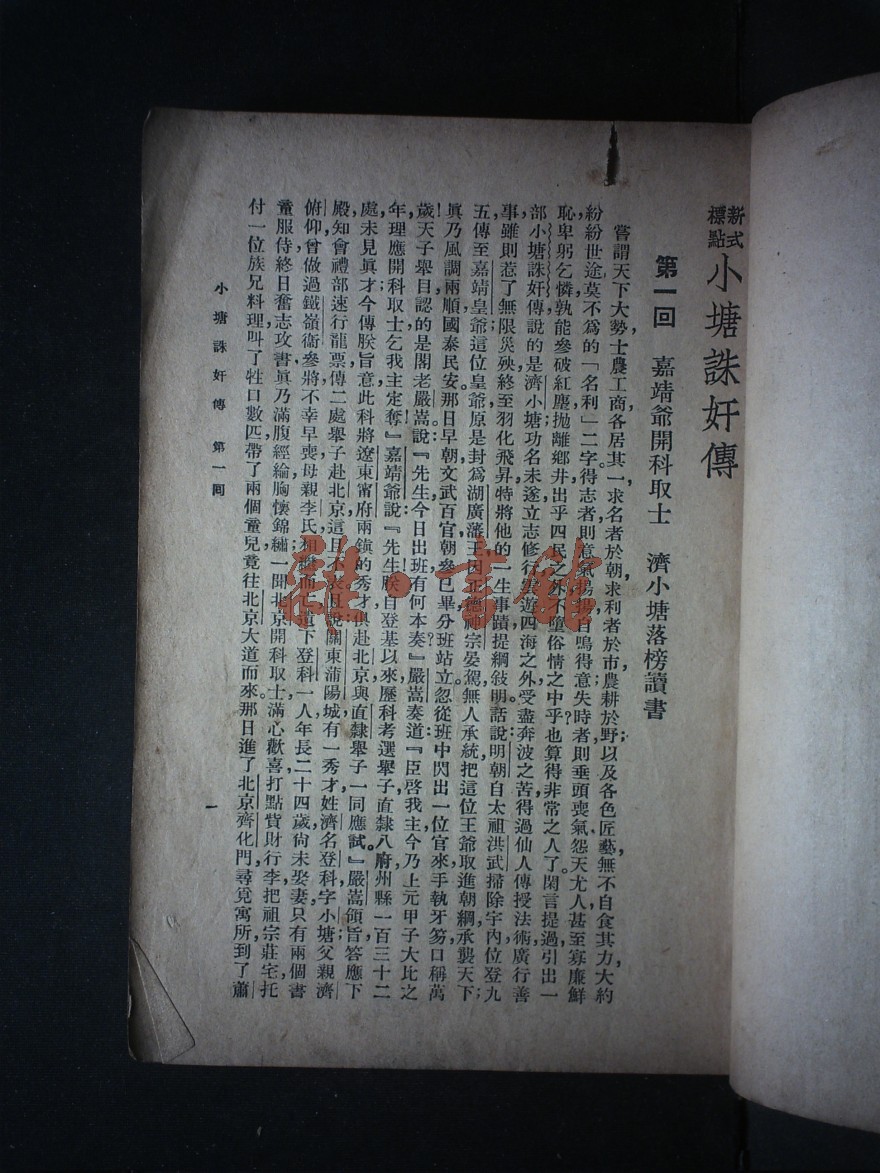 新式標點 小塘誅奸傳
第一回 嘉靖爺開科取士 濟小塘落榜讀書
嘗謂天下大勢,士農工商,各居其一,求名者於朝,求利者於市,農耕於野;以及各色匠藝,無不自食其力,大約
紛紛世途,莫不爲的「名利」二字。得志者則意氣揚揚,自鳴得意,失時者則垂頭喪氣,怨天尤人,甚至寡廉鮮
恥,卑躬乞憐,孰能參破紅塵,拋離鄉井,出乎四民之外,不墮俗情之中乎?也算得非常之人了。閑言提過,引出一
部小塘誅奸傳,說的是濟小塘功名未遂,立志修行,遊四海之外,受盡奔波之苦,得過仙人傳授法術,廣行善
事,雖則惹了無限災殃,終至羽化飛昇,特將他的一生事蹟,提綱敍明。話說明朝自太祖洪武,掃除宇內,位登九
五,傳至嘉靖皇爺,這位皇爺,原是封爲湖廣藩王,因正德神宗晏駕,無人承統,把這位王爺取進朝綱,承襲天下;
眞乃風調雨順,國泰民安。那日早朝,文武百官,朝參已畢,分班站立,忽從班中閃出一位官來,手執牙笏,口稱萬
歲!天子舉目,認的是閣老嚴嵩,說:『先生今日出班,有何本奏?』嚴嵩奏道:『臣啓我主,今乃上元甲子,大比之
年,理應開科取士,乞我主定奪!』嘉靖爺說:『先生!朕自登基以來,歷科考選舉子,直隸八府州縣,一百三十二
處,未見眞才,今傳朕旨意,此科將遼東甯府兩鎮的秀才,俱赴北京,與直隸舉子,一同應試。』嚴嵩領旨,答應下
殿,知會禮部,速行龍票,傳二處舉子赴北京。這且不表,且說關東蒲陽城,有一秀才,姓濟名登科,字小塘,父親濟
俯仰,曾做過鐵嶺衞參將,不幸早喪,母親李氏,相繼而亡,遺下登科一人,年長二十四歲,尙未娶妻,只有兩個書
童服侍,終日奮志攻書,眞乃滿腹經綸,胸懷錦繡,一聞北京開科取士,滿心歡喜,打點貲財行李,把祖宗莊宅,托
付一位族兄料理,叫了牲口數匹,帶了兩個童兒,竟往北京大道而來。那日進了北京齊化門,尋覓寓所,到了蕭
小塘誅奸傳 第一回 一
雜·書館